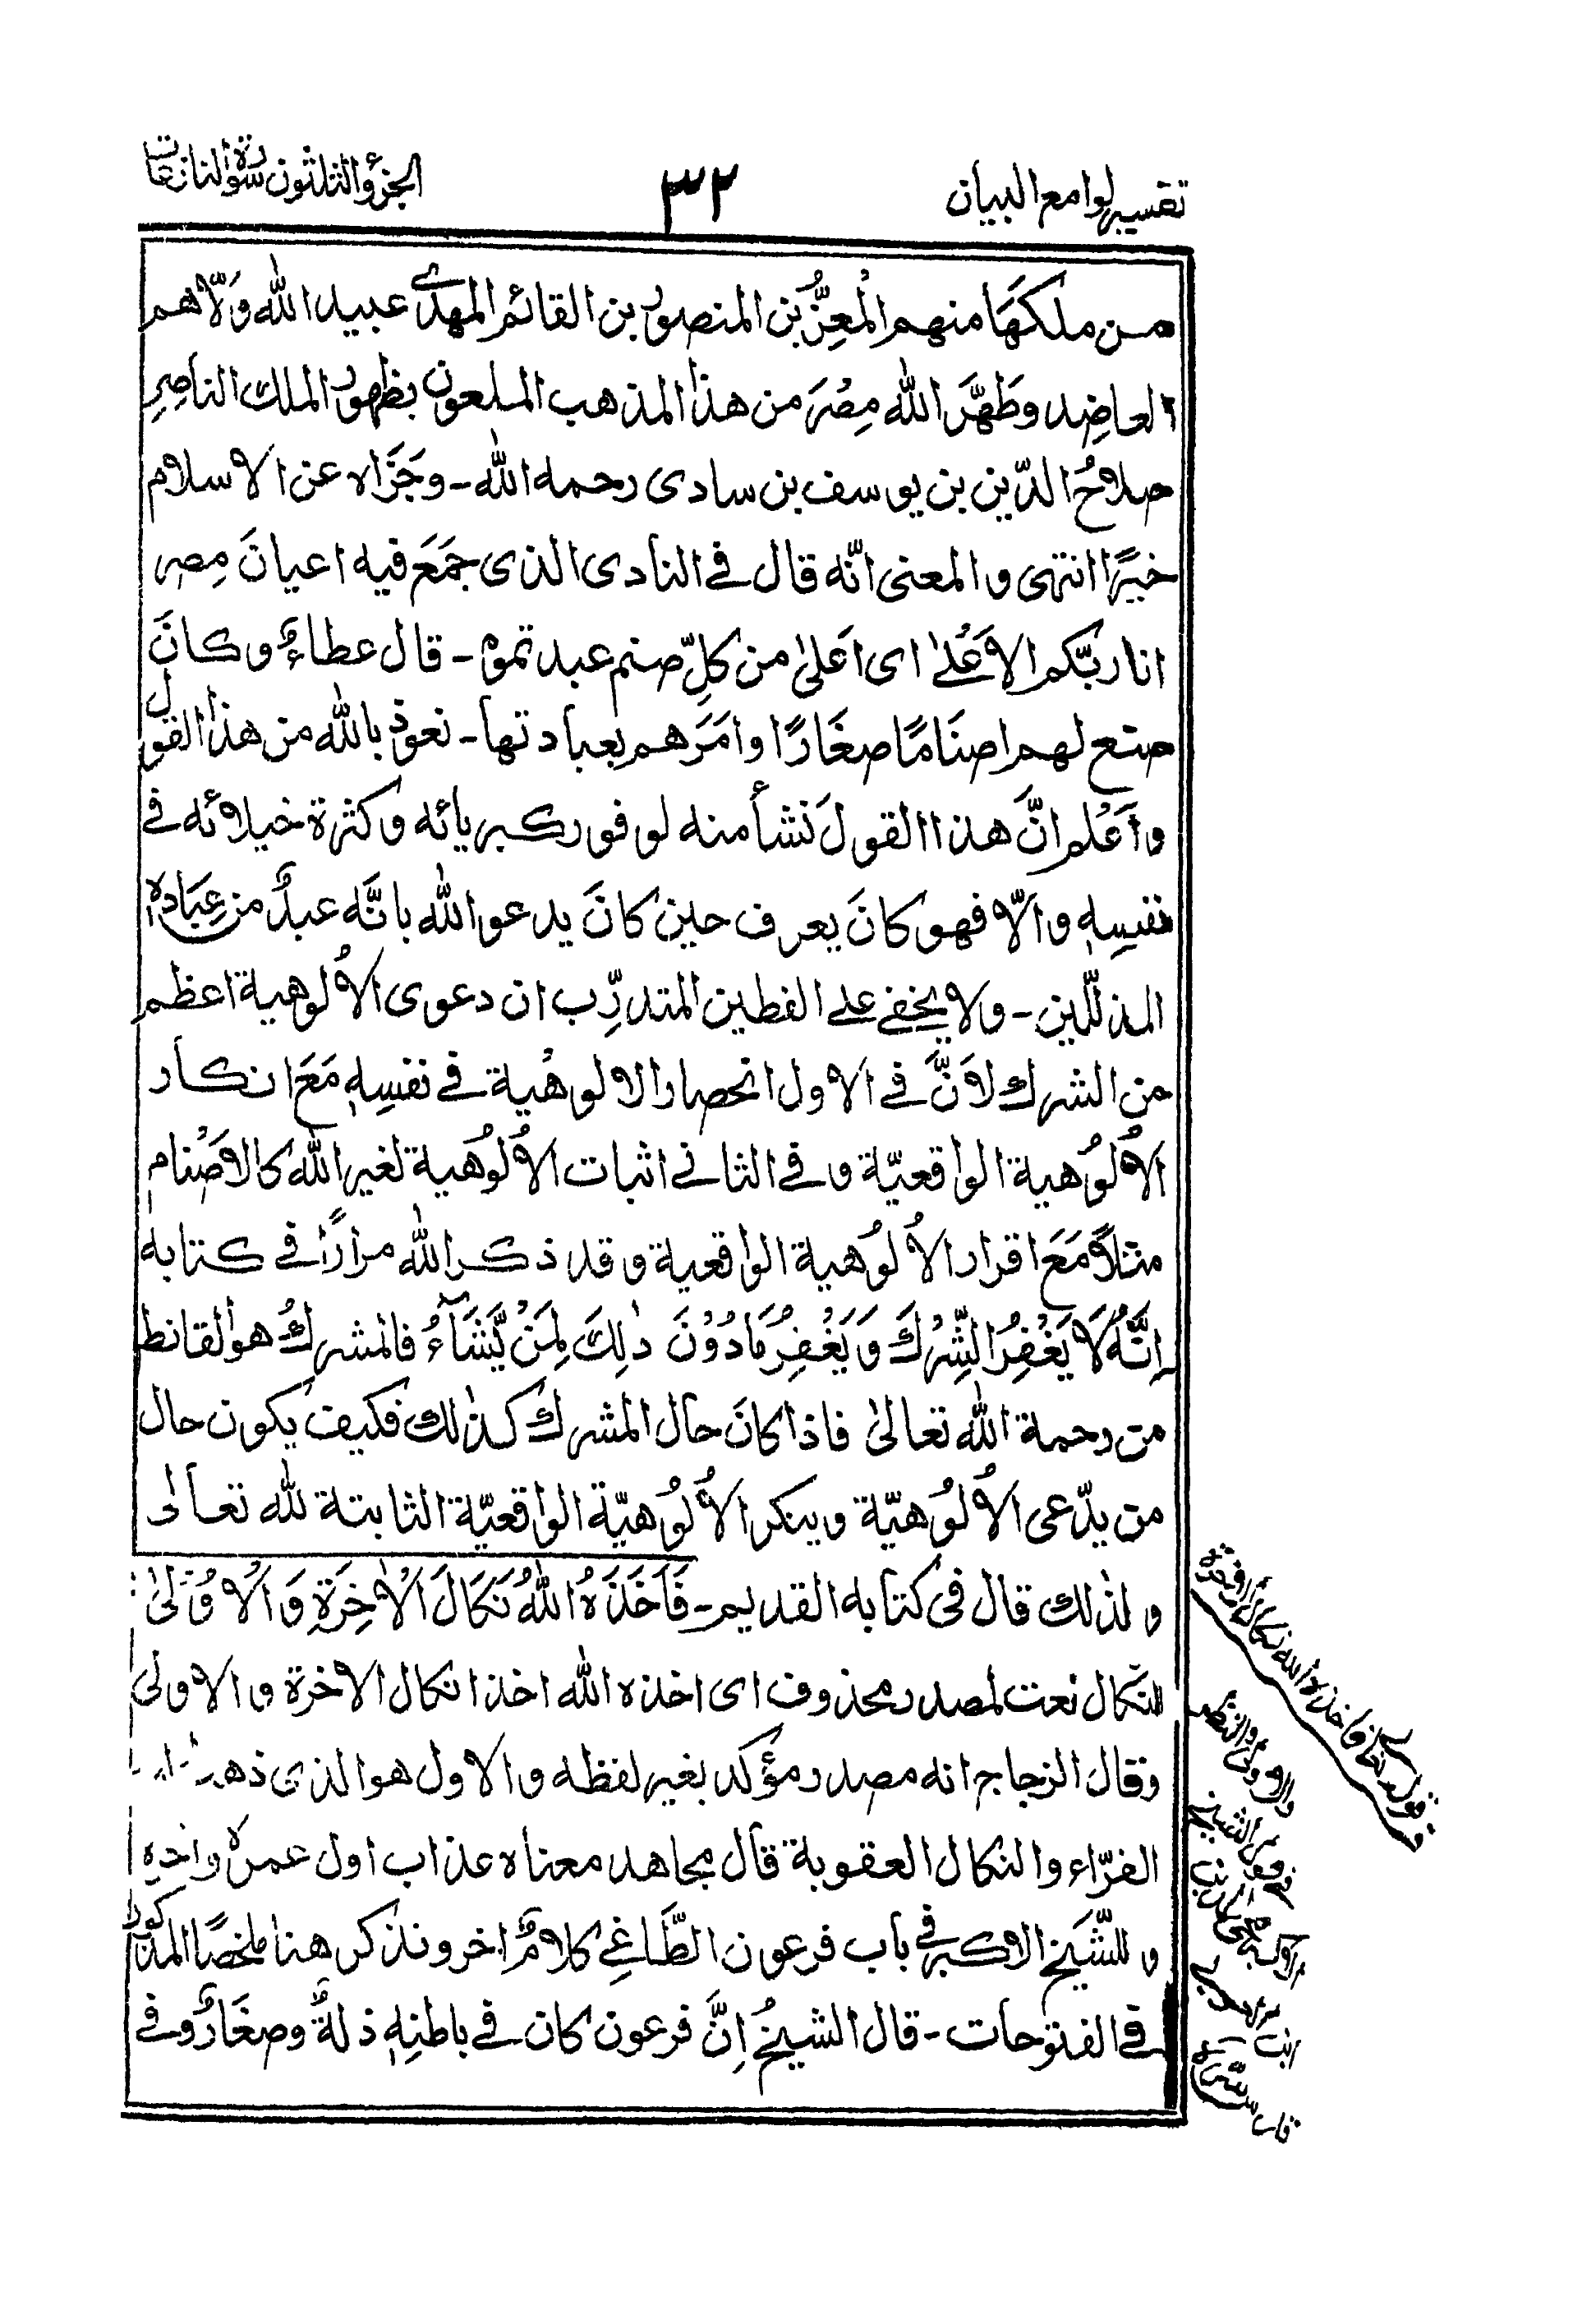 تفسير لوامع البيان
٣٢
الجزؤ الثلثون سورة والنازعات
من ملكها منهم المُعِزُّ بن المنصور بن القائم المهدي عبيد الله وَلّاهم
العاضِد وطَهَّرَ الله مِصْرَ من هذا المذهب الملعون بظهور الملك الناصِرِ
صلاحُ الدّين بن يوسف بن سادى رحمه الله - وجَزَاه عن الاسلام
خيرًا انتهى والمعنى انّه قال فى النادى الذى جَمَعَ فيه اعيانَ مِصر
انا ربّكم الاَعْلىٰ اى اَعلىٰ من كلِّ صنم عبد تموه - قال عطاءٌ وكانَ
صنع لهم اصنَامًا صغَارًا وامَرَهم بعبادتها - نعوذ بالله من هذا القول
واَعْلم انَّ هذا القولَ نَشأ منه لوفور كبريائه وكثرة خيلائه فى
نفسِهٖ والّا فهو كانَ يعرف حين كانَ يدعو الله بانَّه عبدٌ من عِبَادهٖ
المذلّلين - ولا يخفى على الفطين المتدرِّب ان دعوى الاُلوهية اعظم
من الشرك لاَنَّ فى الاول انحصار الالوهْية فى نفسِهٖ مَعَ انكار
الاُلُوْهية الواقعيّة وفى الثانى اثبات الاُلُوْهية لغير الله كالاصْنام
مثلاً مَعَ اقرار الاُلُوْهية الواقعية وقد ذكر الله مرارًا فى كتابه
اِنَّهٗ لَا يَغْفِرُ الشِّرْكَ وَيَغْفِرُ مَا دُوْنَ ذٰلِكَ لِمَنْ يَّشَآءُ فالمشركُ هو القانط
من رحمة الله تعالىٰ فاذا كانَ حال المشرك كذٰلك فكيف يكون حال
من يدّعى الاُلُوْهيّة وينكر الاُلُوْهيّة الواقعيّة الثابتة لله تعالى
ولذلك قال فى كتابه القديم - فَاَخَذَهُ اللهُ نَكَالَ الْاٰخِرَةِ وَالْاُوْلىٰ :
النّكال نعت لمصدر محذوف اى اخذه الله اخذا نكال الاخرة والاولىٰ
وقال الزجاج انه مصدر مؤكد بغير لفظه والاول هو الذى ذهب
الفرّاء والنكال العقوبة قال مجاهد معناه عذاب اول عمره واخره
وللشّيخ الاكبر فى باب فرعون الطّاغى كلامٌ اخر ونذكر هنا ملخصًا المذكور
فى الفتوحات - قال الشيخُ اِنَّ فرعون كان فى باطنِهٖ ذلةٌ وصغَارٌ وفى